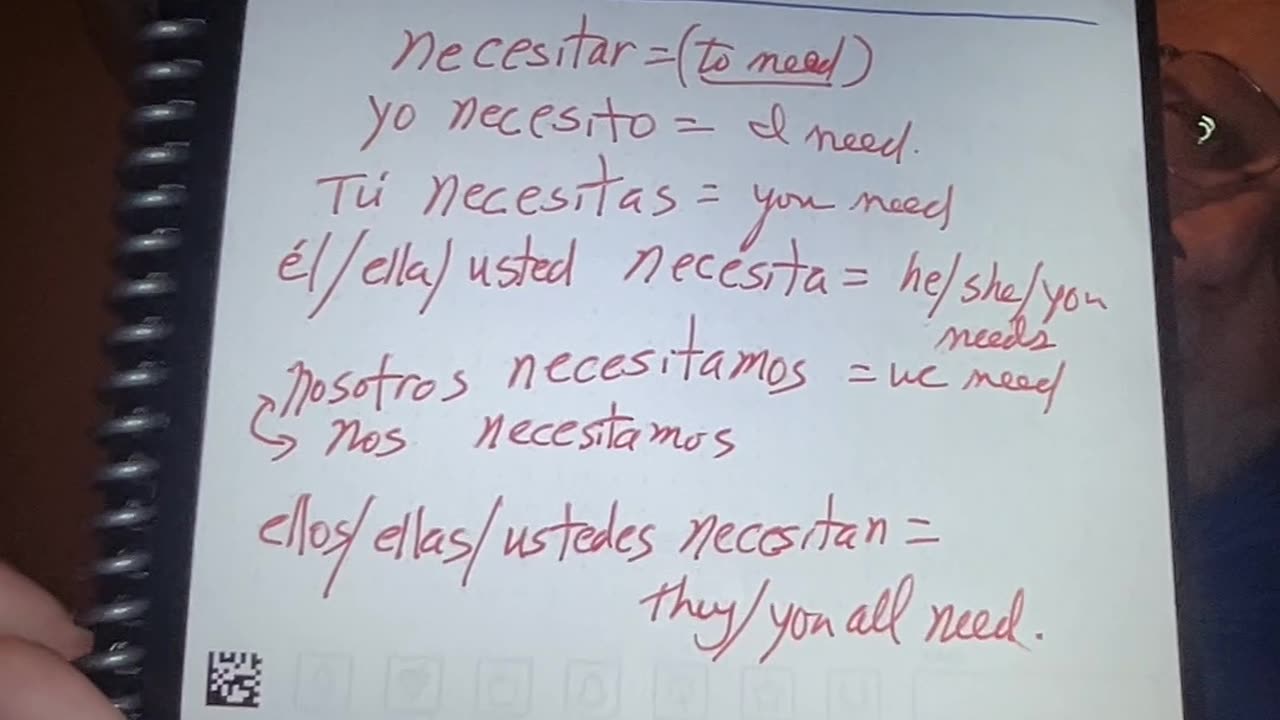 necesitar = (to need)
yo necesito = I need.
Tú necesitas = you need
él/ella/usted necesita = he/she/you
needs
nosotros necesitamos = we need
nos necesitamos
ellos/ellas/ustedes necesitan =
they/you all need.